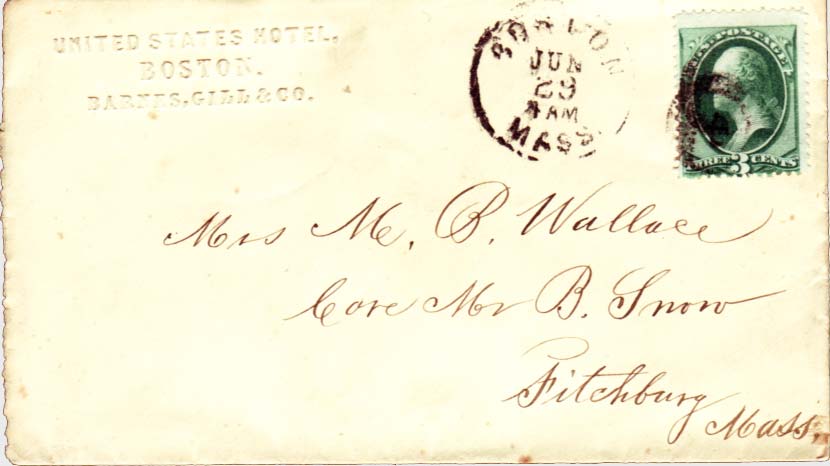 UNITED STATES HOTEL,
BOSTON.
BARNES, GILL & CO.
BOSTON
JUN
29
4 AM
MASS
U.S. POSTAGE
THREE 3 CENTS
Mrs M. B. Wallace
Care Mr B. Snow
Fitchburg
Mass.